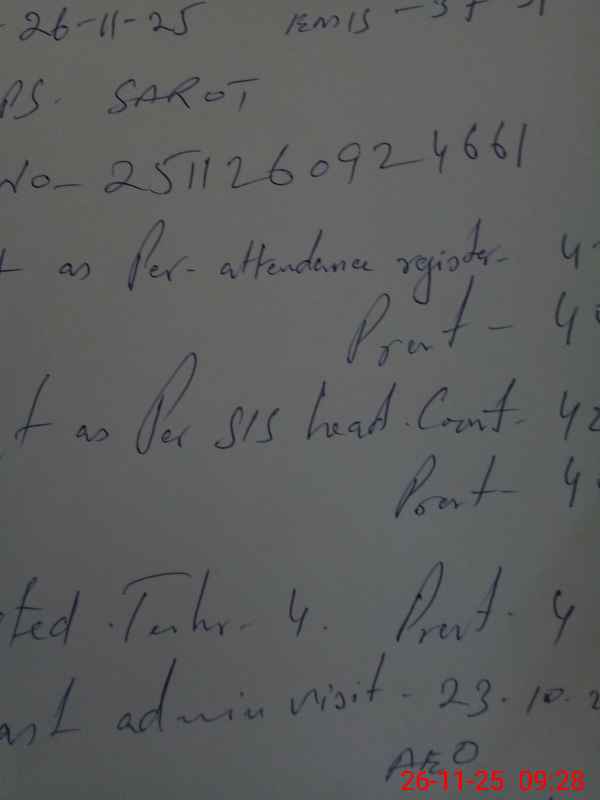 - 26-11-25 EMIS -37
PS. SAROT
No- 251126092 4661
as Per- attendance register- 4
Prent - 4
t as Per SIS head. Count- 42
Prent- 4
ted. Teahr- 4. Prent- 4
ast admin visit - 23.10.2
AEO
26-11-25 09:28